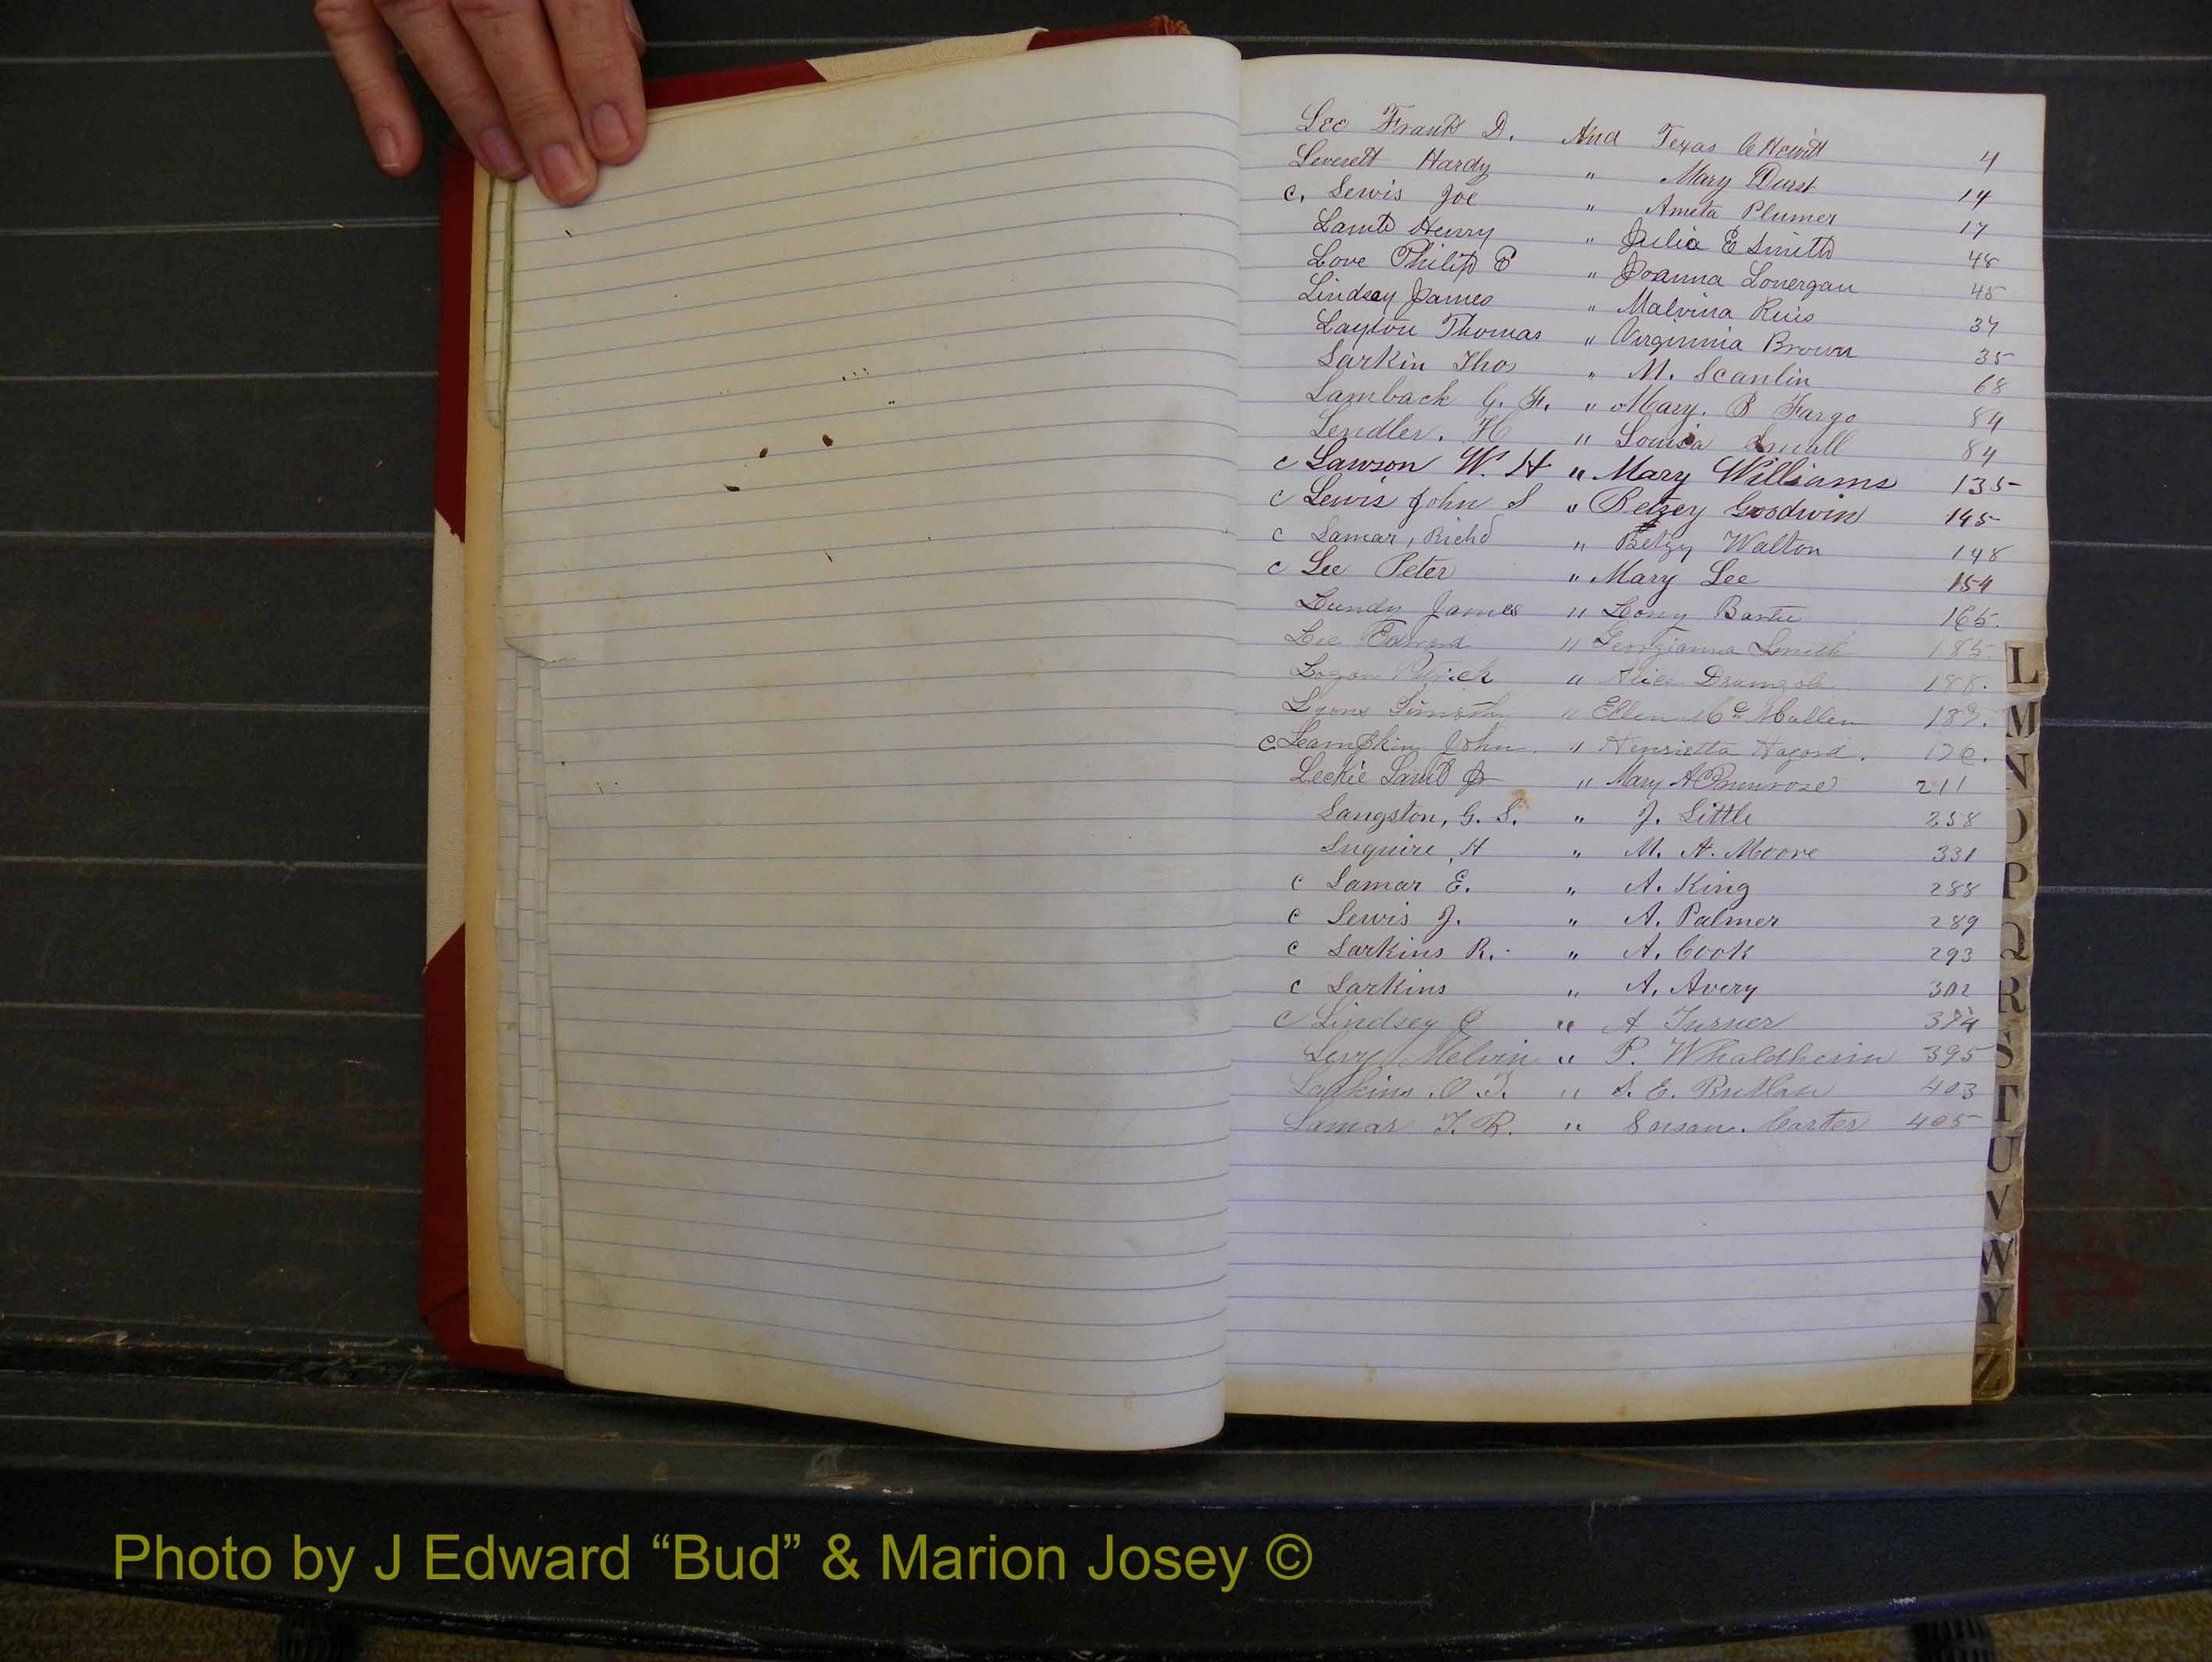 Lee Frank D. And Texas C Hewitt 4
Leverett Hardy " Mary Durst 14
c. Lewis Joe " Ameta Plumer 17
Lamb Henry " Julia E Smith 48
Love Philip E " Joanna Lonergan 45
Lindsay James " Malvina Ruis 37
Layton Thomas " Virginnia Brown 35
Larkin Tho " M. Scanlin 68
Lamback G. F. " Mary. B Fargo 84
Lendler. H " Louisa Small 84
c Lawson W. H " Mary Williams 135
c Lewis John S " Betsey Goodwin 145
c Lamar, Richd " Betzy Walton 148
c Lee Peter " Mary Lee 154
Lundy James " 165.
Lee " Georgianna Smith 185.
Logan " Alice 188.
Lyons Timothy " Ellen Mc Mullen 189.
c. Lampkin John " Henrietta
Leckie " Mary A Primrose 211
Langston, G. S. " J. Little 258
H " M. A. Moore 331
c Lamar E. " A. King 288
c Lewis J. " A. Palmer 289
c Larkins R. " A. Cook 293
c Larkins " A. Avery 302
c Lindsey " A Turner
Levy Melvin " P. Whaldheim 395
Larkins. O. T. " S. E. 403
Lamar T. R. " Susan. Carter 405
L
M
N
O
P
Q
R
S
T
U
V
W
Y
Z
Photo by J Edward “Bud” & Marion Josey ©